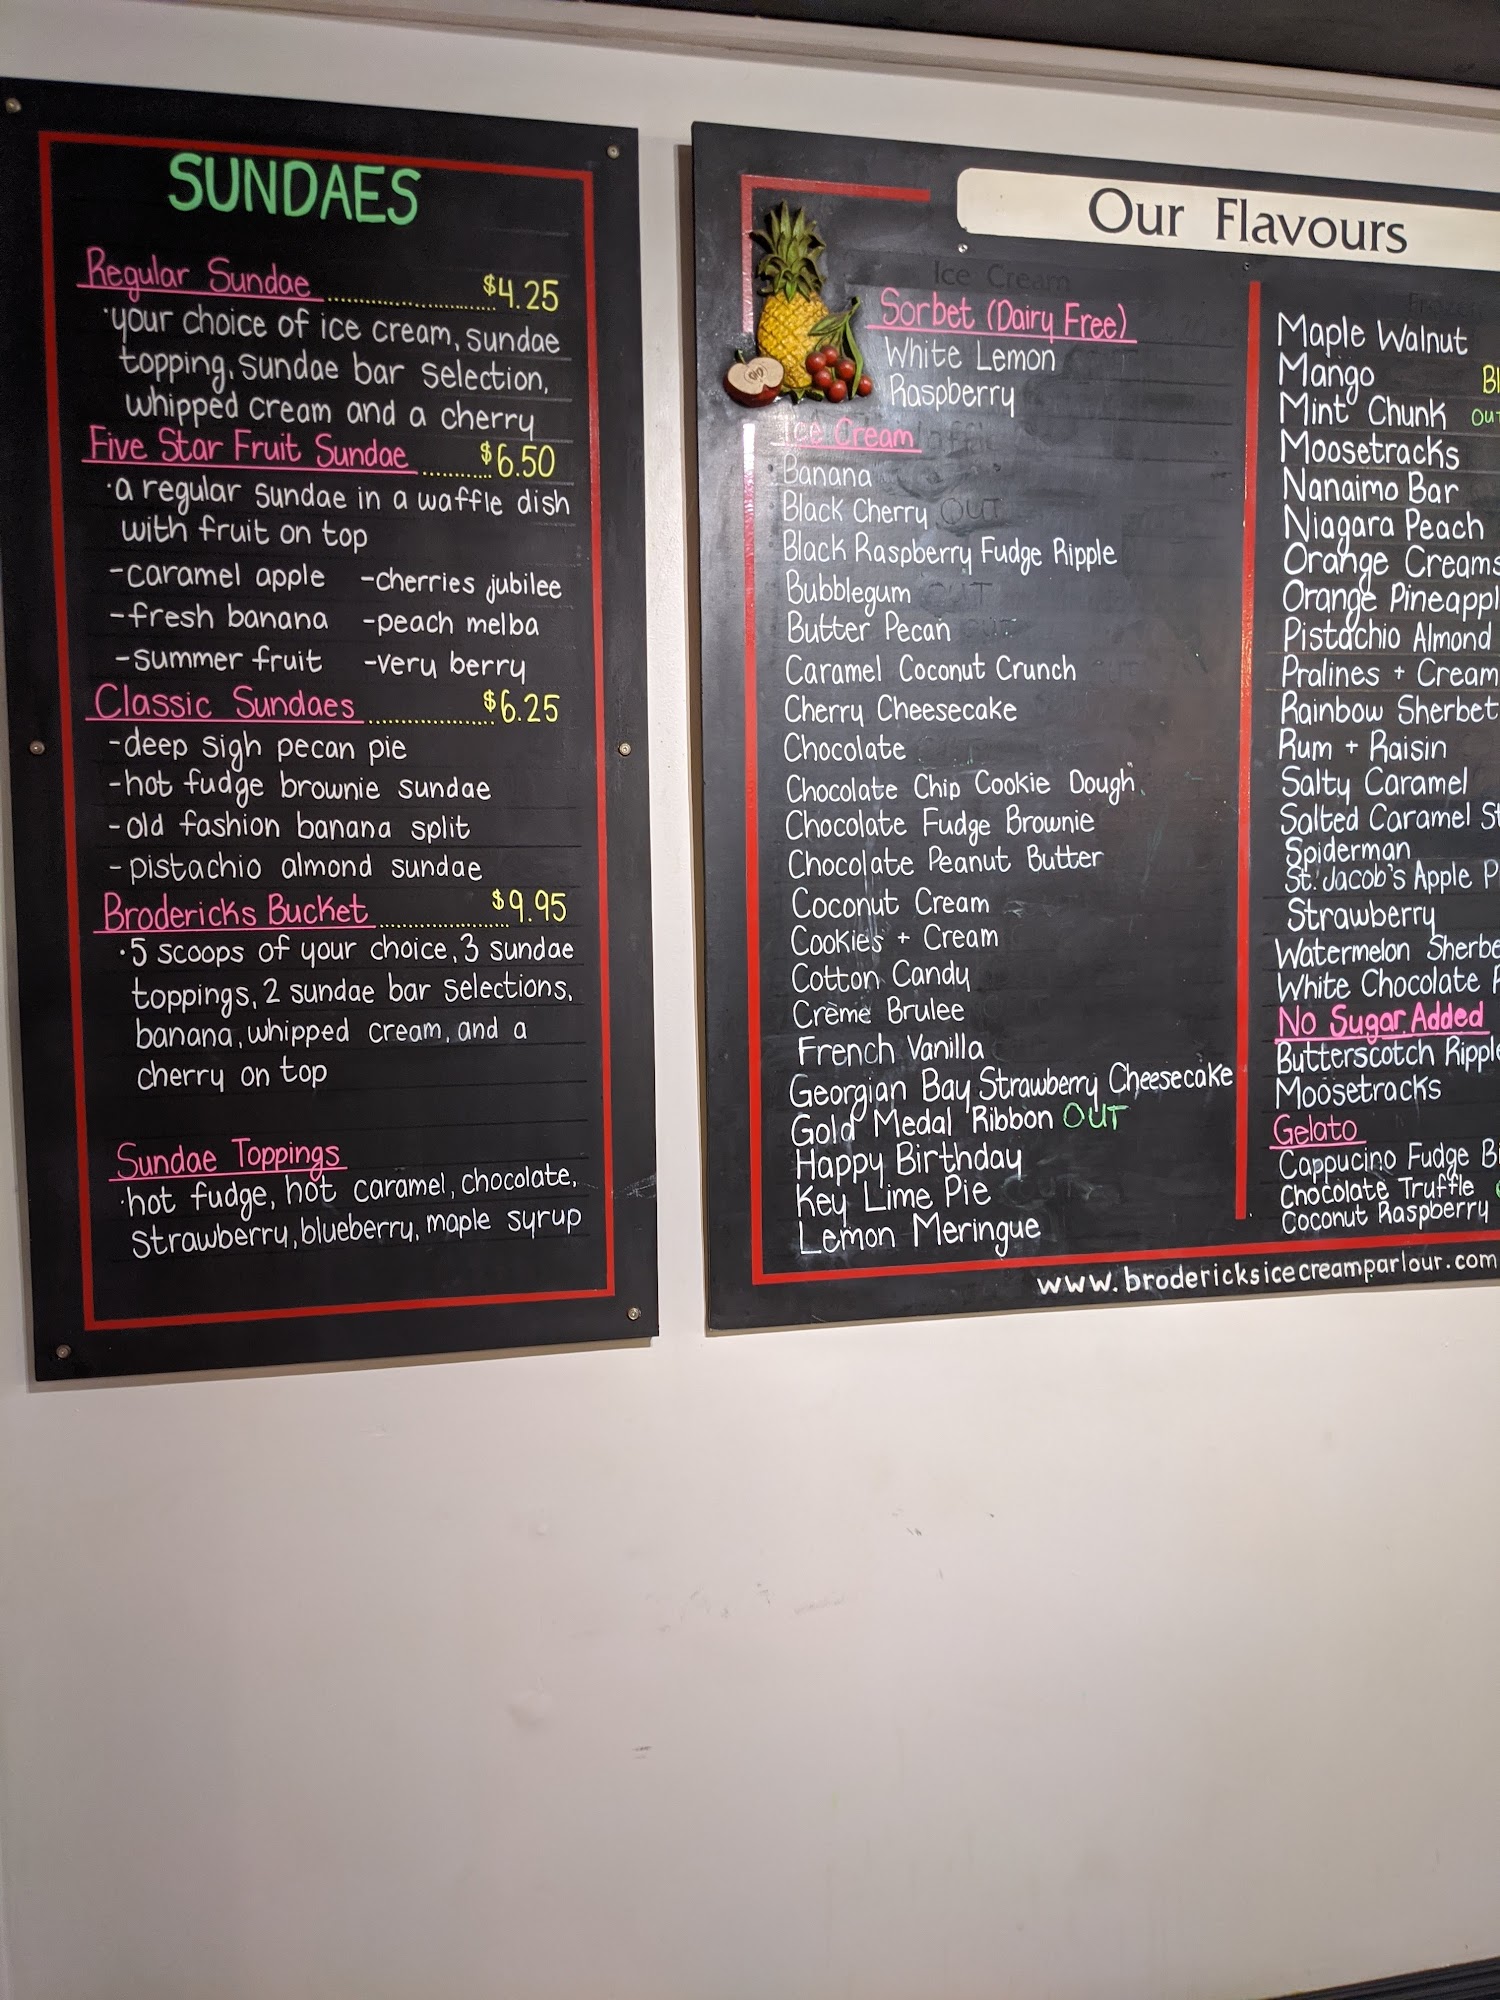 SUNDAES
Regular Sundae ........................ $4.25
·your choice of ice cream, sundae
topping, sundae bar selection,
whipped cream and a cherry
Five Star Fruit Sundae .......... $6.50
·a regular sundae in a waffle dish
with fruit on top
-caramel apple -cherries jubilee
-fresh banana -peach melba
-summer fruit -very berry
Classic Sundaes .................. $6.25
-deep sigh pecan pie
-hot fudge brownie sundae
-old fashion banana split
-pistachio almond sundae
Brodericks Bucket .................. $9.95
·5 scoops of your choice, 3 sundae
toppings, 2 sundae bar selections,
banana, whipped cream, and a
cherry on top
Sundae Toppings
·hot fudge, hot caramel, chocolate,
strawberry, blueberry, maple syrup
Our Flavours
Ice Cream
Sorbet (Dairy Free)
White Lemon
Raspberry
Ice Cream
Banana
Black Cherry OUT
Black Raspberry Fudge Ripple
Bubblegum OUT
Butter Pecan
Caramel Coconut Crunch
Cherry Cheesecake
Chocolate
Chocolate Chip Cookie Dough
Chocolate Fudge Brownie
Chocolate Peanut Butter
Coconut Cream
Cookies + Cream
Cotton Candy
Crème Brulee
French Vanilla
Georgian Bay Strawberry Cheesecake
Gold Medal Ribbon OUT
Happy Birthday
Key Lime Pie
Lemon Meringue
Maple Walnut
Mango
Mint Chunk
Moosetracks
Nanaimo Bar
Niagara Peach
Orange Creams
Orange Pineappl
Pistachio Almond
Pralines + Cream
Rainbow Sherbet
Rum + Raisin
Salty Caramel
Salted Caramel
Spiderman
St. Jacob's Apple
Strawberry
Watermelon Sherbe
White Chocolate
No Sugar Added
Butterscotch Ripple
Moosetracks
Gelato
Cappucino Fudge
Chocolate Truffle
Coconut Raspberry
www.brodericksicecreamparlour.com